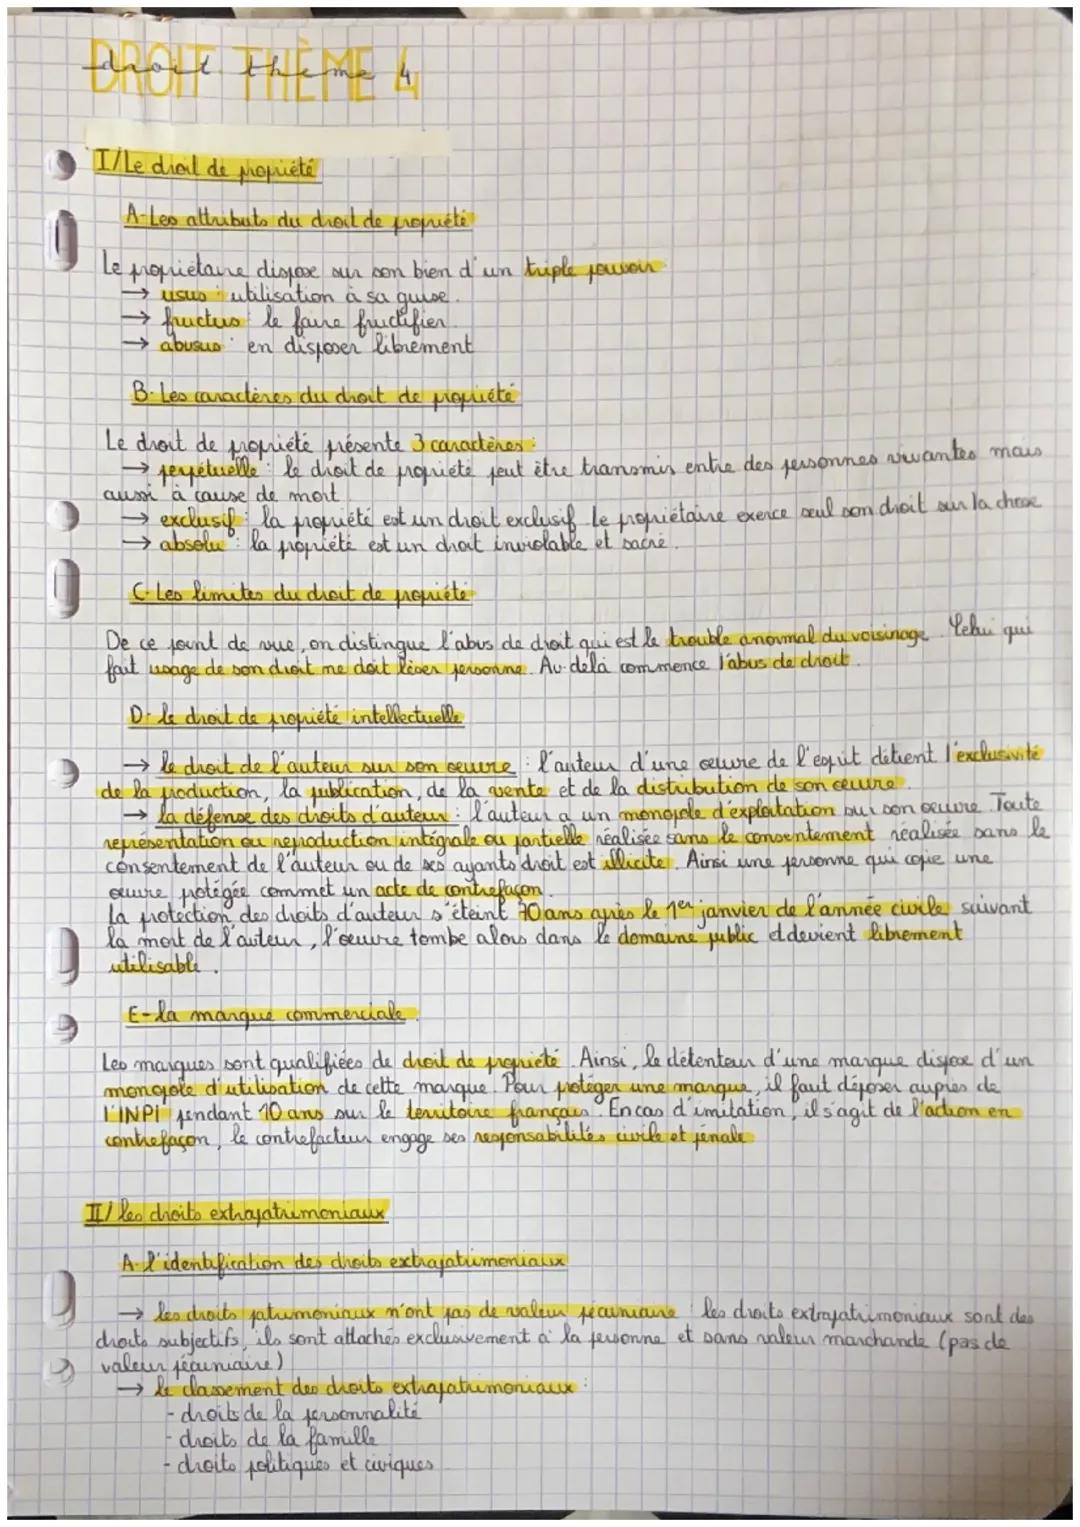 DROIT THÈME 4
droit thème 4
I/Le droit de propriété
A-Les attributs du droit de propriété
Le propriétaire dispose sur son bien d'un triple pouvoir :
→ usus : utilisation à sa guise.
→ fructus : le faire fructifier.
→ abusus : en disposer librement
B-Les caractères du droit de propriété
Le droit de propriété présente 3 caractères :
→ perpétuelle : le droit de propriété peut être transmis entre des personnes vivantes mais
aussi à cause de mort.
→ exclusif : la propriété est un droit exclusif. Le propriétaire exerce seul son droit sur la chose
→ absolu : la propriété est un droit inviolable et sacré.
C-Les limites du droit de propriété
De ce point de vue, on distingue l'abus de droit qui est le trouble anormal du voisinage. Celui qui
fait usage de son droit ne doit léser personne. Au-delà commence l'abus de droit.
D-le droit de propriété intellectuelle
→ le droit de l'auteur sur son oeuvre : l'auteur d'une oeuvre de l'esprit détient l'exclusivité
de la production, la publication, de la vente et de la distribution de son oeuvre.
→ la défense des droits d'auteur : l'auteur a un monopole d'exploitation sur son oeuvre. Toute
représentation ou reproduction intégrale ou partielle réalisée sans le consentement réalisée sans le
consentement de l'auteur ou de ses ayants droit est illicite. Ainsi une personne qui copie une
oeuvre protégée commet un acte de contrefaçon.
La protection des droits d'auteur s'éteint 70 ans après le 1er janvier de l'année civile suivant
la mort de l'auteur, l'oeuvre tombe alors dans le domaine public et devient librement
utilisable.
E-la marque commerciale.
Les marques sont qualifiées de droit de propriété. Ainsi, le détenteur d'une marque dispose d'un
monopole d'utilisation de cette marque. Pour protéger une marque, il faut déposer auprès de
l'INPI pendant 10 ans sur le territoire français. En cas d'imitation, il s'agit de l'action en
contrefaçon, le contrefacteur engage ses responsabilités civile et pénale
II/ les droits extrapatrimoniaux
A-l'identification des droits extrapatrimoniaux
→ les droits patrimoniaux n'ont pas de valeur pécuniaire : les droits extrapatrimoniaux sont des
droits subjectifs, ils sont attachés exclusivement à la personne et sans valeur marchande (pas de
valeur pécuniaire)
→ le classement des droits extrapatrimoniaux :
- droits de la personnalité
- droits de la famille
- droits politiques et civiques